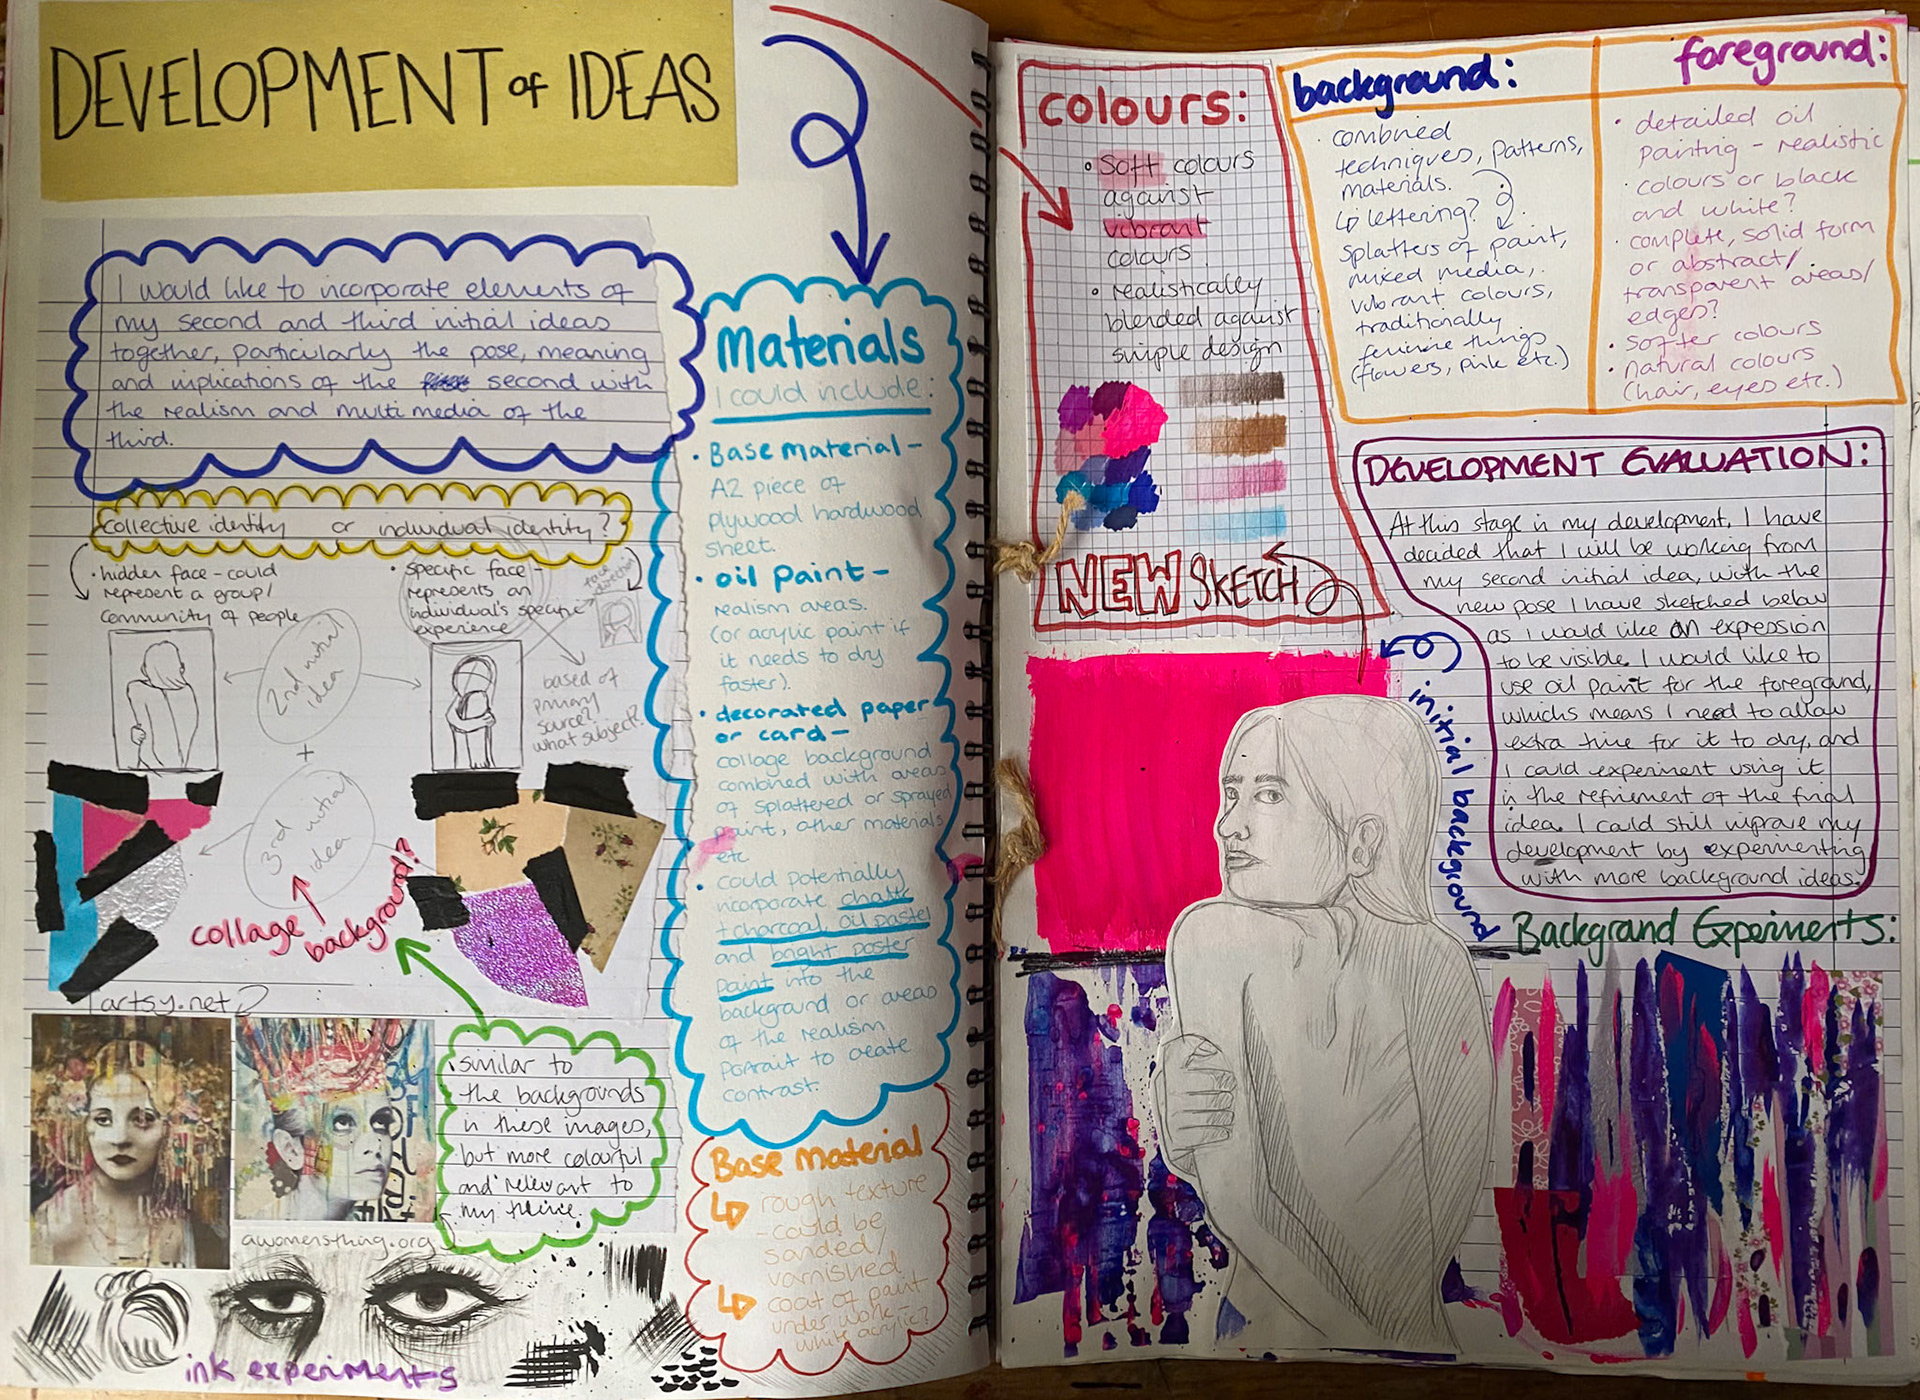 DEVELOPMENT of IDEAS
I would like to incorporate elements of
my second and third initial ideas
together, particularly the pose, meaning
and implications of the second with
the realism and multi media of the
third.
collective identity or individual identity?
• hidden face - could
represent a group/
community of people
• specific face -
represents an
individual's specific
experience
face
direction
2nd initial
idea
based of
primary
source?
what subject?
+
3rd initial
idea
collage
background?
artsy.net
• similar to
the backgrounds
in these images,
but more colourful
and relevant to
my theme.
awomensthing.org
ink experiments
Materials
I could include:
• Base material -
A2 piece of
plywood hardwood
sheet.
• oil paint -
realism areas.
(or acrylic paint if
it needs to dry
faster).
• decorated paper
or card -
collage background
combined with areas
of splattered or sprayed
paint, other materials
etc
• could potentially
incorporate chalk
+ charcoal, oil pastel
and bright poster
paint into the
background or areas
of the realism
portrait to create
contrast.
Base material
↳ rough texture
could be
sanded/
varnished
↳ coat of paint
under work -
white acrylic?
colours:
• soft colours
against
vibrant
colours
• realistically
blended against
simple design
NEW SKETCH
background:
• combined
techniques, patterns,
materials.
↳ lettering?
splatters of paint,
mixed media,
vibrant colours,
traditionally
feminine things
(flowers, pink etc.)
foreground:
• detailed oil
painting - realistic
• colours or black
and white?
• complete, solid form
or abstract/
transparent areas/
edges?
• softer colours
• natural colours
(hair, eyes etc.)
DEVELOPMENT EVALUATION:
At this stage in my development, I have
decided that I will be working from
my second initial idea, with the
new pose I have sketched below
as I would like an expression
to be visible. I would like to
use oil paint for the foreground,
which means I need to allow
extra time for it to dry, and
I could experiment using it
in the refinement of the final
idea. I could still improve my
development by experimenting
with more background ideas.
initial background
Background Experiments: